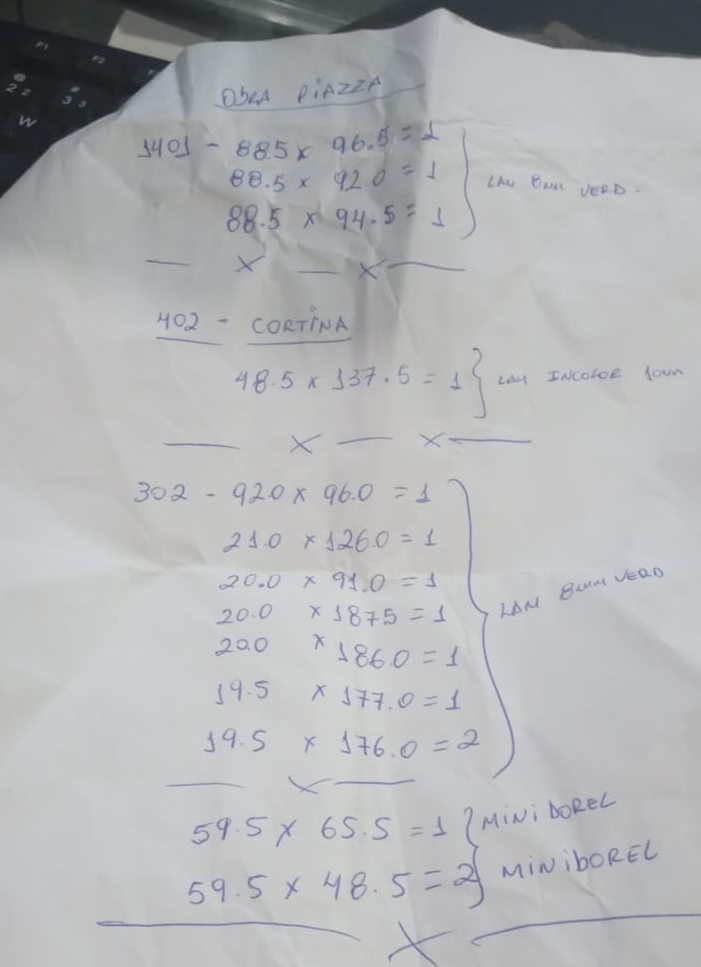 OBRA PIAZZA
1401 - 88.5 x 96.5 = 1
88.5 x 92.0 = 1
88.5 x 94.5 = 1
LAM 8MM VERD.
402 - CORTINA
48.5 x 137.5 = 1 LAM INCOLOR 10MM
302 - 92.0 x 96.0 = 1
21.0 x 126.0 = 1
20.0 x 91.0 = 1
20.0 x 187.5 = 1
20.0 x 186.0 = 1
19.5 x 177.0 = 1
19.5 x 176.0 = 2
LAM 8MM VERD
59.5 x 65.5 = 1 MINI BOREL
59.5 x 48.5 = 2 MINIBOREL
F1
F2
F
@
2 2
#
3 3
W